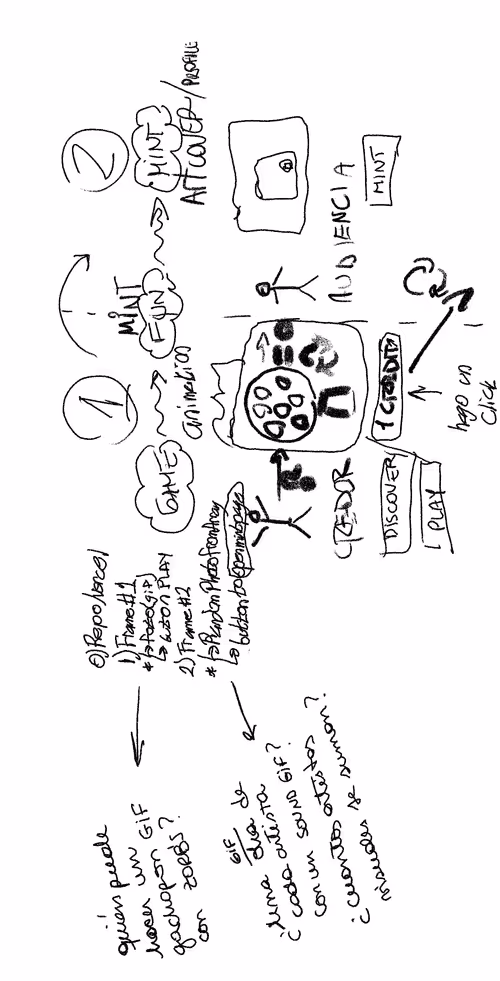 1
2
GAME
animation
MINT
FUN
MINT
ART COVER / PROFILE
0) Repo/vercel
1) Frame #1
* ↳ Foto (gif)
↳ button PLAY
2) Frame #2
* ↳ Random Photo from Array
↳ button to open mint page
CREADOR
DISCOVERY
PLAY
1 CREDITS
hago un
click
AUDIENCIA
MINT
quién puede
hacer un GIF
gachapon
con ZORBS?
GIF
¿una de
cada artista
con un SOUND GIF?
¿cuantos artistas
visuales se suman?